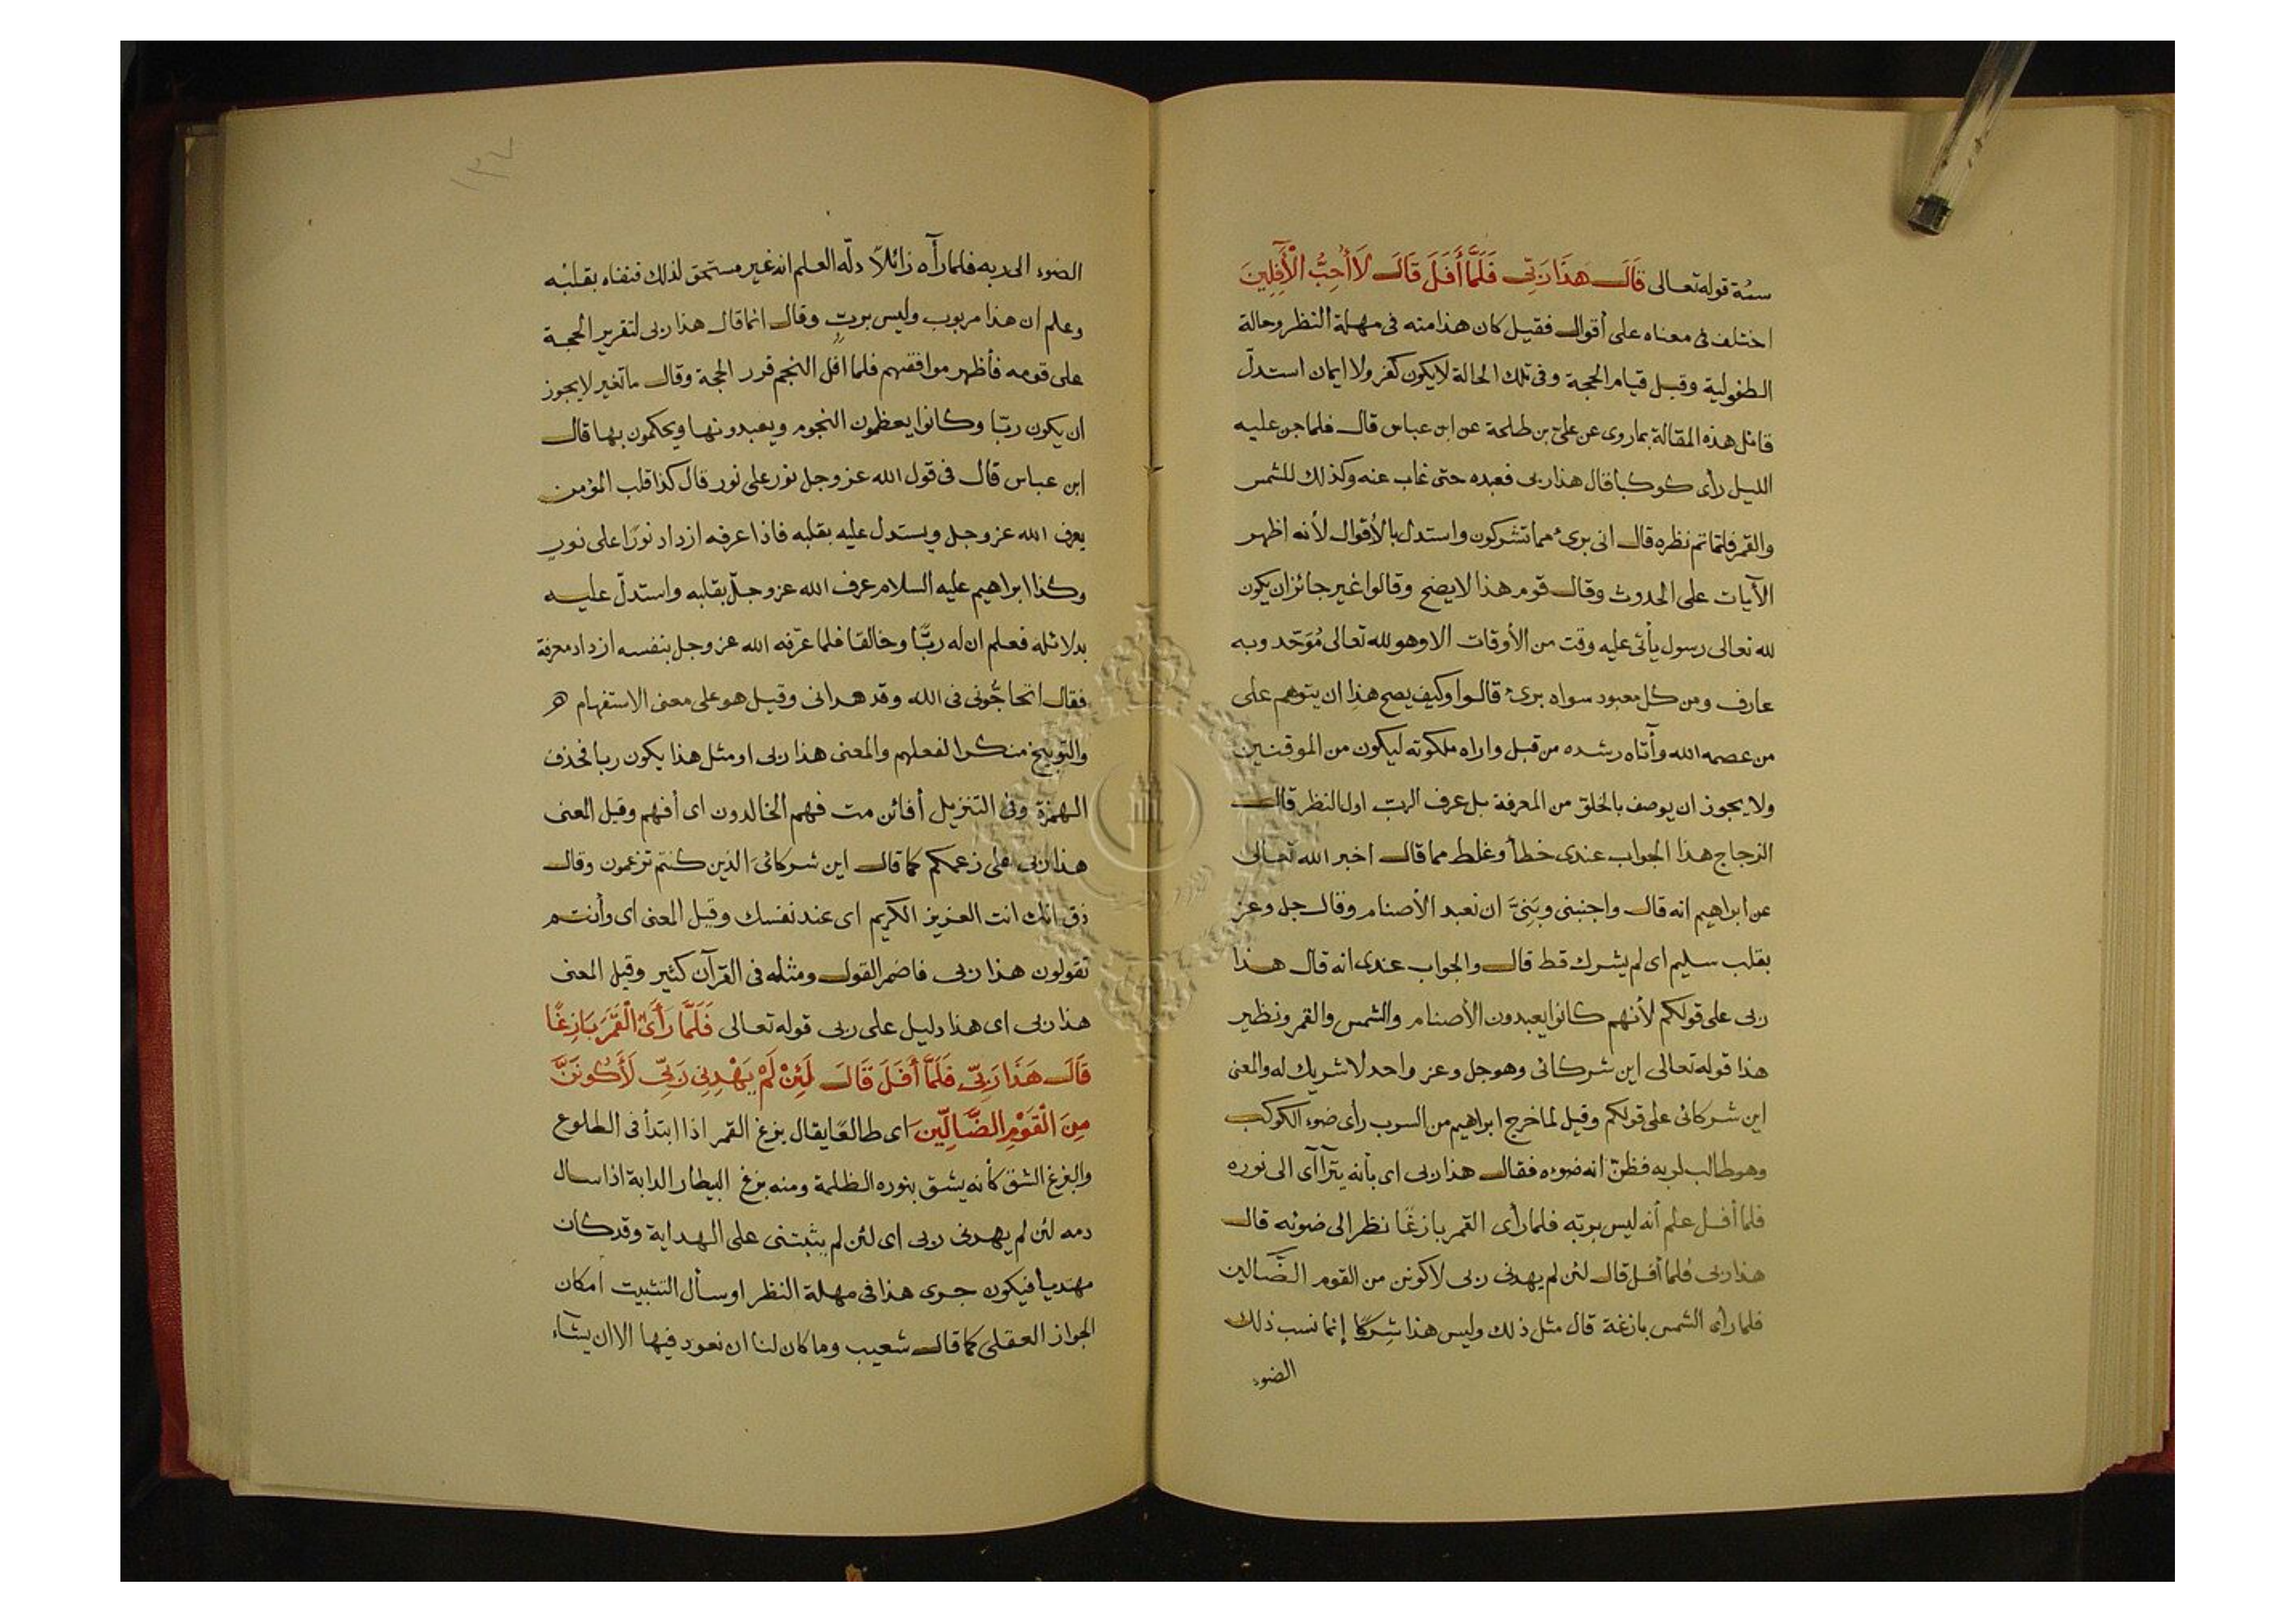 سنة قوله تعالى قَالَ هَذَا رَبِّي فَلَمَّا أَفَلَ قَالَ لَا أُحِبُّ الْآفِلِينَ
اختلف فى معناه على أقوال فقيل كان هذا منه فى مهلة النظر وحالة
الطفولية وقبل قيام الحجة وفى تلك الحالة لا يكون كفر ولا ايمان استدلّ
قائل هذه المقالة بما روى عن علىّ بن طلحة عن ابن عباس قال فلما جن عليه
الليل رأى كوكبا قال هذا ربى فعبده حتى غاب عنه وكذلك للشمس
والقمر فلمّا تم نظره قال انى برئ مما تشركون واستدل بالأقوال لأنه اظهر
الآيات على الحدوث وقال قوم هذا لا يصح وقالوا غير جائز ان يكون
لله تعالى رسول يأتى عليه وقت من الأوقات الا وهو لله تعالى مُوَحّد وبه
عارف ومن كل معبود سواه برئ قالوا وكيف يصح هذا ان يتوهم على
من عصمه الله وأتاه رشده من قبل واراه ملكوته ليكون من الموقنين
ولا يجوز ان يوصف بالخلق من المعرفة بل عرف الربّ اول النظر قال
الزجاج هذا الجواب عندى خطأ وغلط مما قال اخبر الله تعالى
عن ابراهيم انه قال واجنبنى وبَنِىَّ ان نعبد الأصنام وقال جل وعز
بقلب سليم اى لم يشرك قط قال والجواب عندى انه قال هذا
ربى على قولكم لأنهم كانوا يعبدون الأصنام والشمس والقمر ونظير
هذا قوله تعالى اين شركائى وهو جل وعز واحد لا شريك له والمعنى
اين شركائى على قولكم وقيل لما خرج ابراهيم من السرب رأى ضوء الكوكب
وهو طالب لربه فظنّ انه ضوءه فقال هذا ربى اى بأنه يتراآى الى نوره
فلما أفل علم أنه ليس بربّه فلما رأى القمر بازغًا نظر الى ضوئه قال
هذا ربى فلما أفل قال لئن لم يهدنى ربى لاكونن من القوم الضَّالين
فلما رأى الشمس بازغة قال مثل ذلك وليس هذا شِركًا إنما نسب ذلك
الضوء
١٣٧
الضوء الى ربه فلما رآه زائلًا دلّه العلم انه غير مستحق لذلك فنفاه بقلبه
وعلم ان هذا مربوب وليس بربٍّ وقال انما قال هذا ربى لتقرير الحجة
على قومه فأظهر موافقتهم فلما افل النجم قرر الحجة وقال ما تغير لا يجوز
ان يكون ربّا وكانوا يعظمون النجوم ويعبدونها ويحكمون بها قال
ابن عباس قال فى قول الله عز وجل نور على نور قال كذا قلب المؤمن
يعرف الله عز وجل ويستدل عليه بقلبه فاذا عرفه ازداد نورًا على نور
وكذا ابراهيم عليه السلام عرف الله عز وجلّ بقلبه واستدلّ عليه
بدلائله فعلم ان له ربًّا وخالقا فلما عرّفه الله عز وجل بنفسه ازداد معرفة
فقال اتحاجُّونى فى الله وقد هدانى وقيل هو على معنى الاستفهام
والتوبيخ منكرا لفعلهم والمعنى هذا ربى او مثل هذا يكون ربا فحذف
الهمزة وفى التنزيل أفائن مت فهم الخالدون اى أفهم وقيل المعنى
هذا ربى على زعمكم كما قال اين شركائىَ الذين كنتم تزعمون وقال
ذق انك انت العزيز الكريم اى عند نفسك وقيل المعنى اى وأنتم
تقولون هذا ربى فاضمر القول ومثله فى القرآن كثير وقيل المعنى
هذا ربى اى هذا دليل على ربى قوله تعالى فَلَمَّا رَأَى الْقَمَرَ بَازِغًا
قَالَ هَذَا رَبِّي فَلَمَّا أَفَلَ قَالَ لَئِنْ لَمْ يَهْدِنِي رَبِّي لَأَكُونَنَّ
مِنَ الْقَوْمِ الضَّالِّينَ اى طالعًا يقال بزغ القمر اذا ابتدأ فى الطلوع
والبزغ الشق كأنه يشق بنوره الظلمة ومنه بزغ البيطار الدابة اذا سال
دمه لئن لم يهدنى ربى اى لئن لم يثبتنى على الهداية وقد كان
مهتديا فيكون جرى هذا فى مهلة النظر او سأل التثبيت امكان
الجواز العقلى كما قال شعيب وما كان لنا ان نعود فيها الا ان يشآء